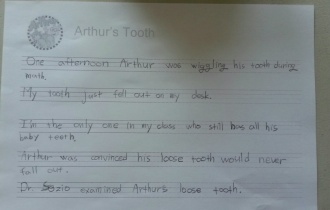 Arthur's Tooth
One afternoon Arthur was wiggling his tooth during
math.
My tooth just fell out on my desk.
I'm the only one in my class who still has all his
baby teeth.
Arthur was convinced his loose tooth would never
fall out.
Dr. Sozio examined Arthur's loose tooth.